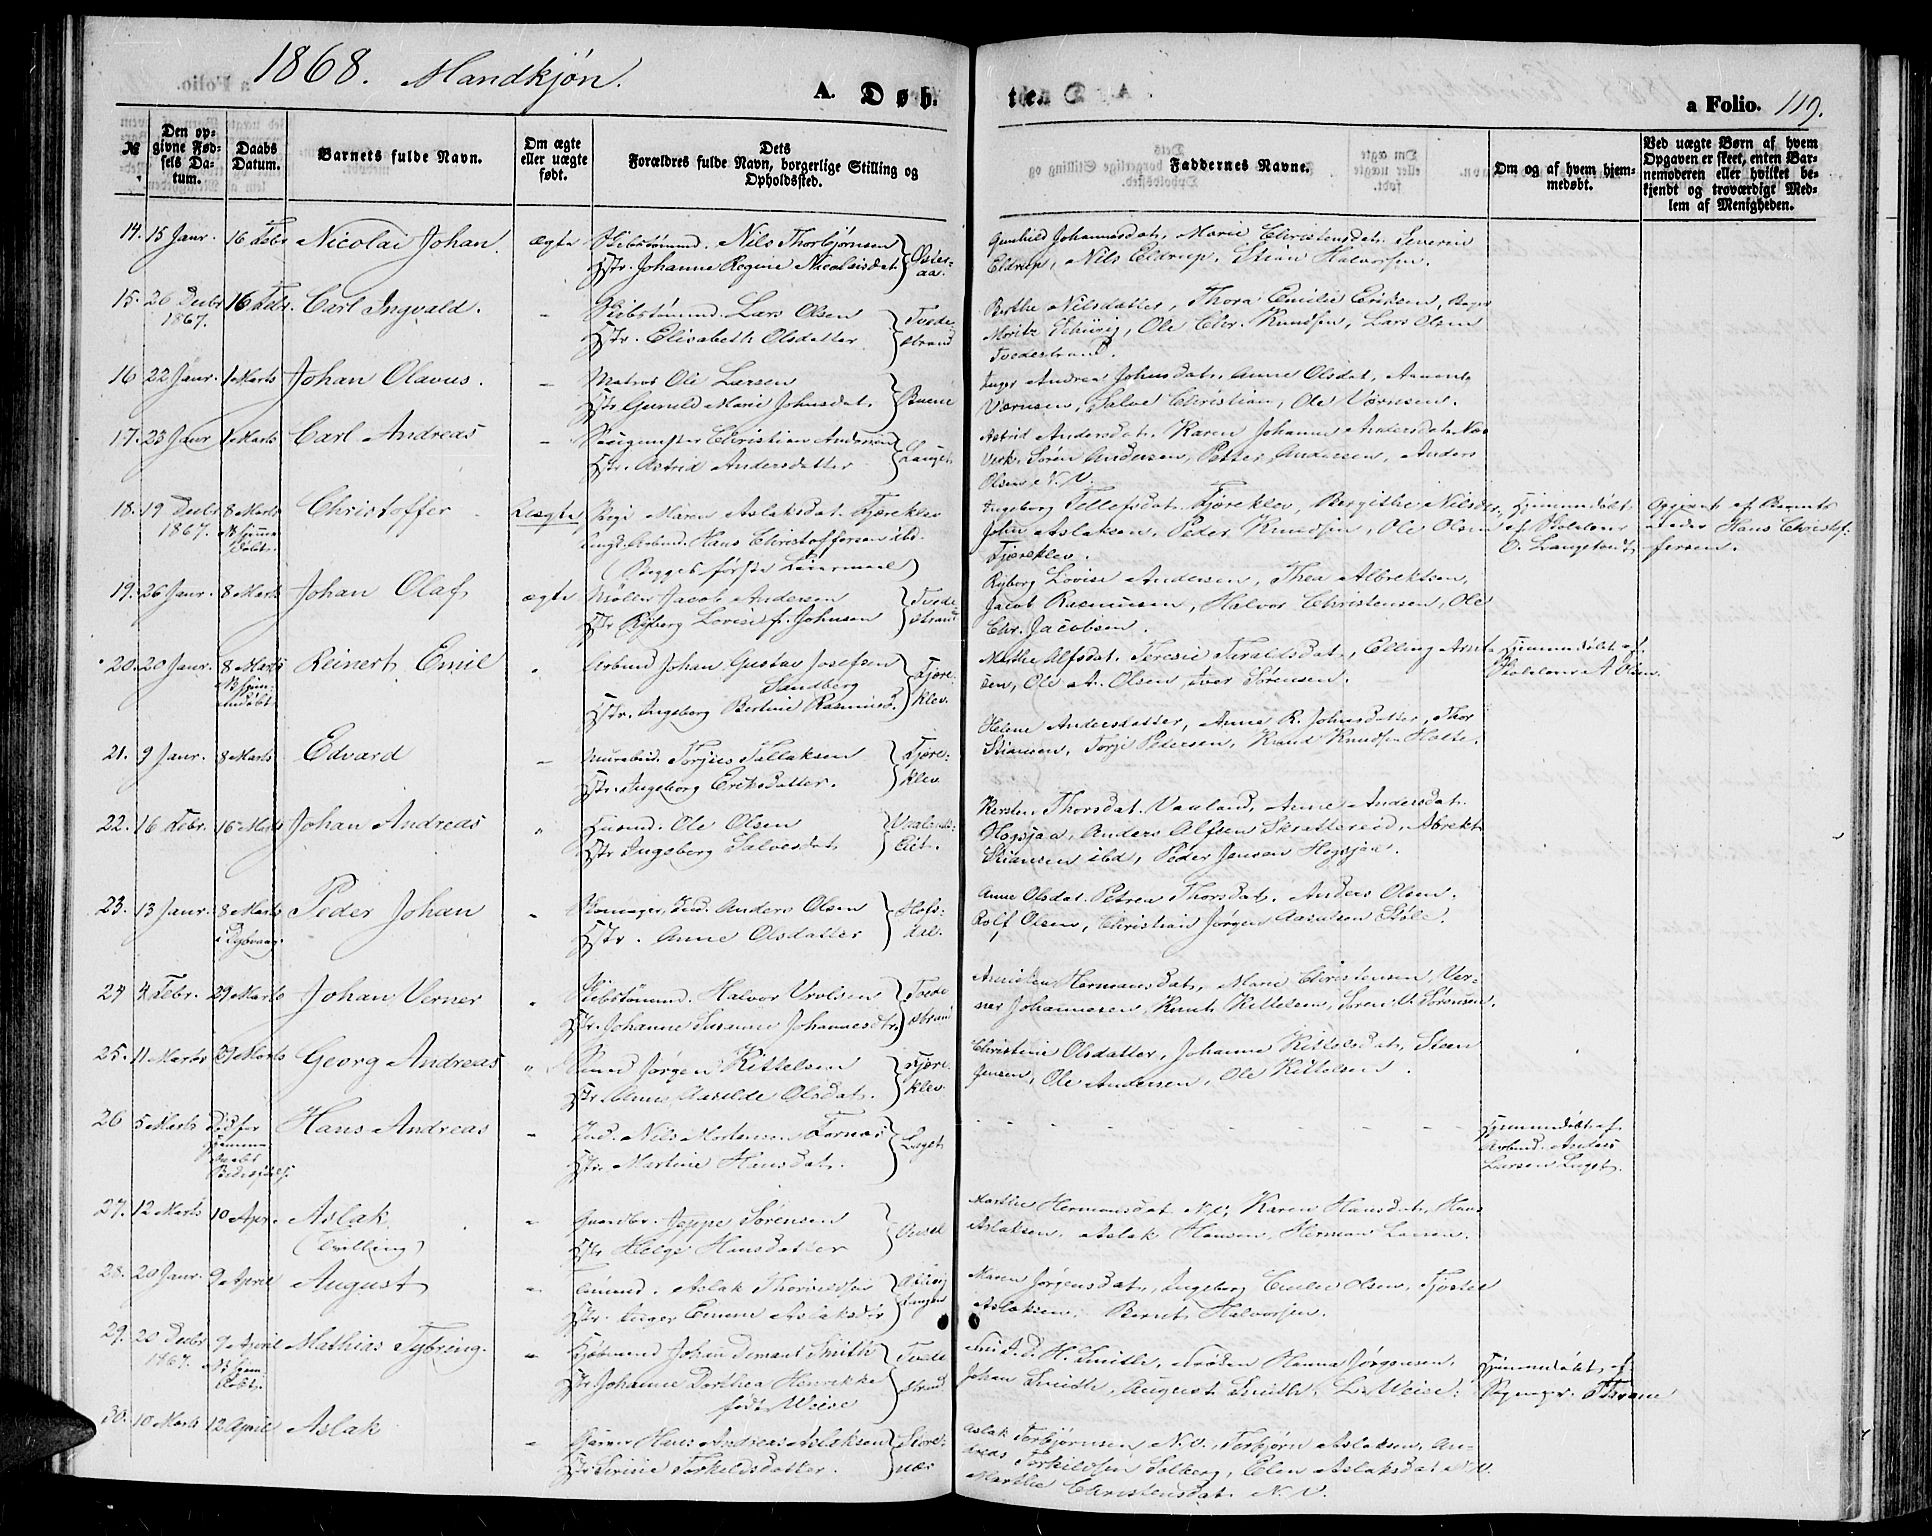 1868. Mandkjøn.
A. Døb-
te.
a Folio. 119.
№
Den op-
givne Fød-
sels Da-
tum.
Daabs
Datum.
Barnets fulde Navn.
Om ægte
eller uægte
født.
Dets
Forældres fulde Navn, borgerlige Stilling og
Opholdssted.
Faddernes Navne.
Om og af hvem hjem-
medøbt.
Ved uægte Børn af hvem
Opgaven er skeet, enten Bar-
nemoderen eller hvilket be-
kjendt og troværdigt Med-
lem af Menigheden.
14. 15 Janr. 16 Febr Nicolai Johan. ægte Skibstømmd. Nils Thorbjørnsen
Hstr. Johanne Regine Nicolaisdat. Østeraa.
Gunhild Johannesdat. Marie Christensdat. Severin
Eldrup, Nils Eldrup, Stian Halvorsen.
15. 26 Decbr 1867. 16 Febr. Carl Ingvald. " Skibstømmd. Lars Olsen
Hstr. Elisabeth Olsdatter Tvedestrand
Berthe Nilsdatter, Thora Emilie Eriksen, Bager
Moritz Schürig, Ole Chr. Knudsen, Lars Olsen
Tvedestrand.
16 22 Janr. 1 Marts Johan Olavus. " Matros Ole Larsen
Hstr Gunild Marie Johnsdat.
Inger Andrea Johnsdat, Anne Olsdat,
Salve Christian, Ole
17. 23 Janr 1 Marts Carl Andreas " Christian Andersen
Hstr. Astrid Andersdatter Lauget.
Astrid Andersdat. Karen Johanne Andersdat. Næs
Verk. Søren Andersen, Petter Andersen, Anders
Olsen N.V.
18. 19 Decbr 1867. 8 Marts Christoffer Uægte Pige Maren Aslaksdat. Fjæreklev
Ungk. Arbmd. Hans Christoffersen ibd.
(Begges første Leiermaal)
Ingeborg Tellefsdat. Fjæreklev, Bergithe Nilsdtr,
John Aslaksen, Peder Knudsen, Ole Olsen
Fjæreklev.
Hjemmedøbt
af Skolelærer
O. Langstedt
Opgivet af Barnets
Hans Christof-
fersen.
19. 26 Janr. 8 Marts Johan Olaf ægte Møller Jacob Andersen
Hstr Ryberg Lovise f. Johnsen Tvedestrand
Ryborg Lovise Andersen, Thea Albrektsen,
Jacob Rasmussen, Halvor Christensen, Ole
Chr. Jacobsen.
20. 20 Janr. 8 Marts Reinert Emil " Arbmd Johan Gustav Josefsen
Sandberg
Hstr. Ingeborg Bertine Rasmusd. Fjæreklev.
Marthe Alfsdat. Teresie Taraldsdat., Elling Arnt-
sen, Ole A. Olsen, Iver Sørensen.
Hjemmedøbt af
Skolelærer A Olsen.
21. 9 Janr. 8 Marts Edvard " Torjus Tallaksen
Hstr. Ingeborg Eriksdatter. Fjæreklev
Helene Andersdatter, Anne R. Johnsdatter, Thor
Stiansen, Torje Pedersen, Knud Knudsen Holte.
22. 16 Febr. 16 Marts Johan Andreas " Husmd. Ole Olsen
Hstr Ingeborg Salvesdat.
Kirsten Thorsdat. Vauland, Anne Andersdat.
Hogsjaa, Anders Alfsen Skrattereid, Abrekt
Stiansen ibd, Peder Jensen Hogsjaa.
23. 13 Janr. 8 Marts Peder Johan " Skomager, Ind. Anders Olsen
Hstr. Anne Olsdatter
Anne Olsdat. Petrea Thorsdat. Anders Olsen
Rolf Olsen, Christian Jørgen Aanesen Støle.
24 4 Febr. 29 Marts Johan Verner " Skibstømmd. Halvor Urolsen
Hstr. Johanne Susanne Johannesdtr. Tvedestrand
Hermansdat, Marie Christensen, Ver-
ner Johannesen, Knut Kittelsen, Søren U. Sørensen.
25. 11 Marts 29 Marts Georg Andreas " Jørgen Kittelsen
Hstr. Anne Aasilde Olsdat. Fjæreklev.
Christine Olsdatter, Johanne Kittelsdat., Stian
Jensen, Ole Andersen, Ole Kittelsen.
26 5 Marts Død før
Hans Andreas " Ind. Nils Mortensen Tornæs
Hstr. Martine Hansdat. Laget
Hjemmedøbt af
Arbmd. Anders
Larsen Laget.
27. 12 Marts 10 Apr. Aslak
(Tvilling) " Gaardbr. Jeppe Sørensen
Hstr Helge Hansdatter
Marthe Hermansdat. N.V, Karen Hansdat, Hans
Aslaksen, Aslak Hansen, Herman Larsen.
28. 20 Janr. 9 April August " Tømmd. Aslak Thorvaldsen
Hstr. Inger Emine Aslaksdtr
Maren Jørgensdat, Ingeborg Emilie Olsen, Tjøstel
Aslaksen, Bernt Halvorsen.
29. 20 Decbr 1867. 9 April Mathias Tybring. " Kjøbmand Johan Demant Smith
Hstr Johanne Dorthea Henrikke
født Weise Tvedestrand
Fru A. D. H. Smith, Frøken Hanna Jørgensen,
Johan Smith, August Smith, L. Weise.
Hjemmedøbt af
Thrane
30. 10 Marts 12 April Aslak " Hans Andreas Aslaksen
Hstr Sirine Torkeldsdatter. Storenæs
Aslak Torbjørnsen N.V., Torbjørn Aslaksen, An-
dreas Torkildsen Solberg, Elen Aslaksdat N.V.
Marthe Christensdat. N.V.